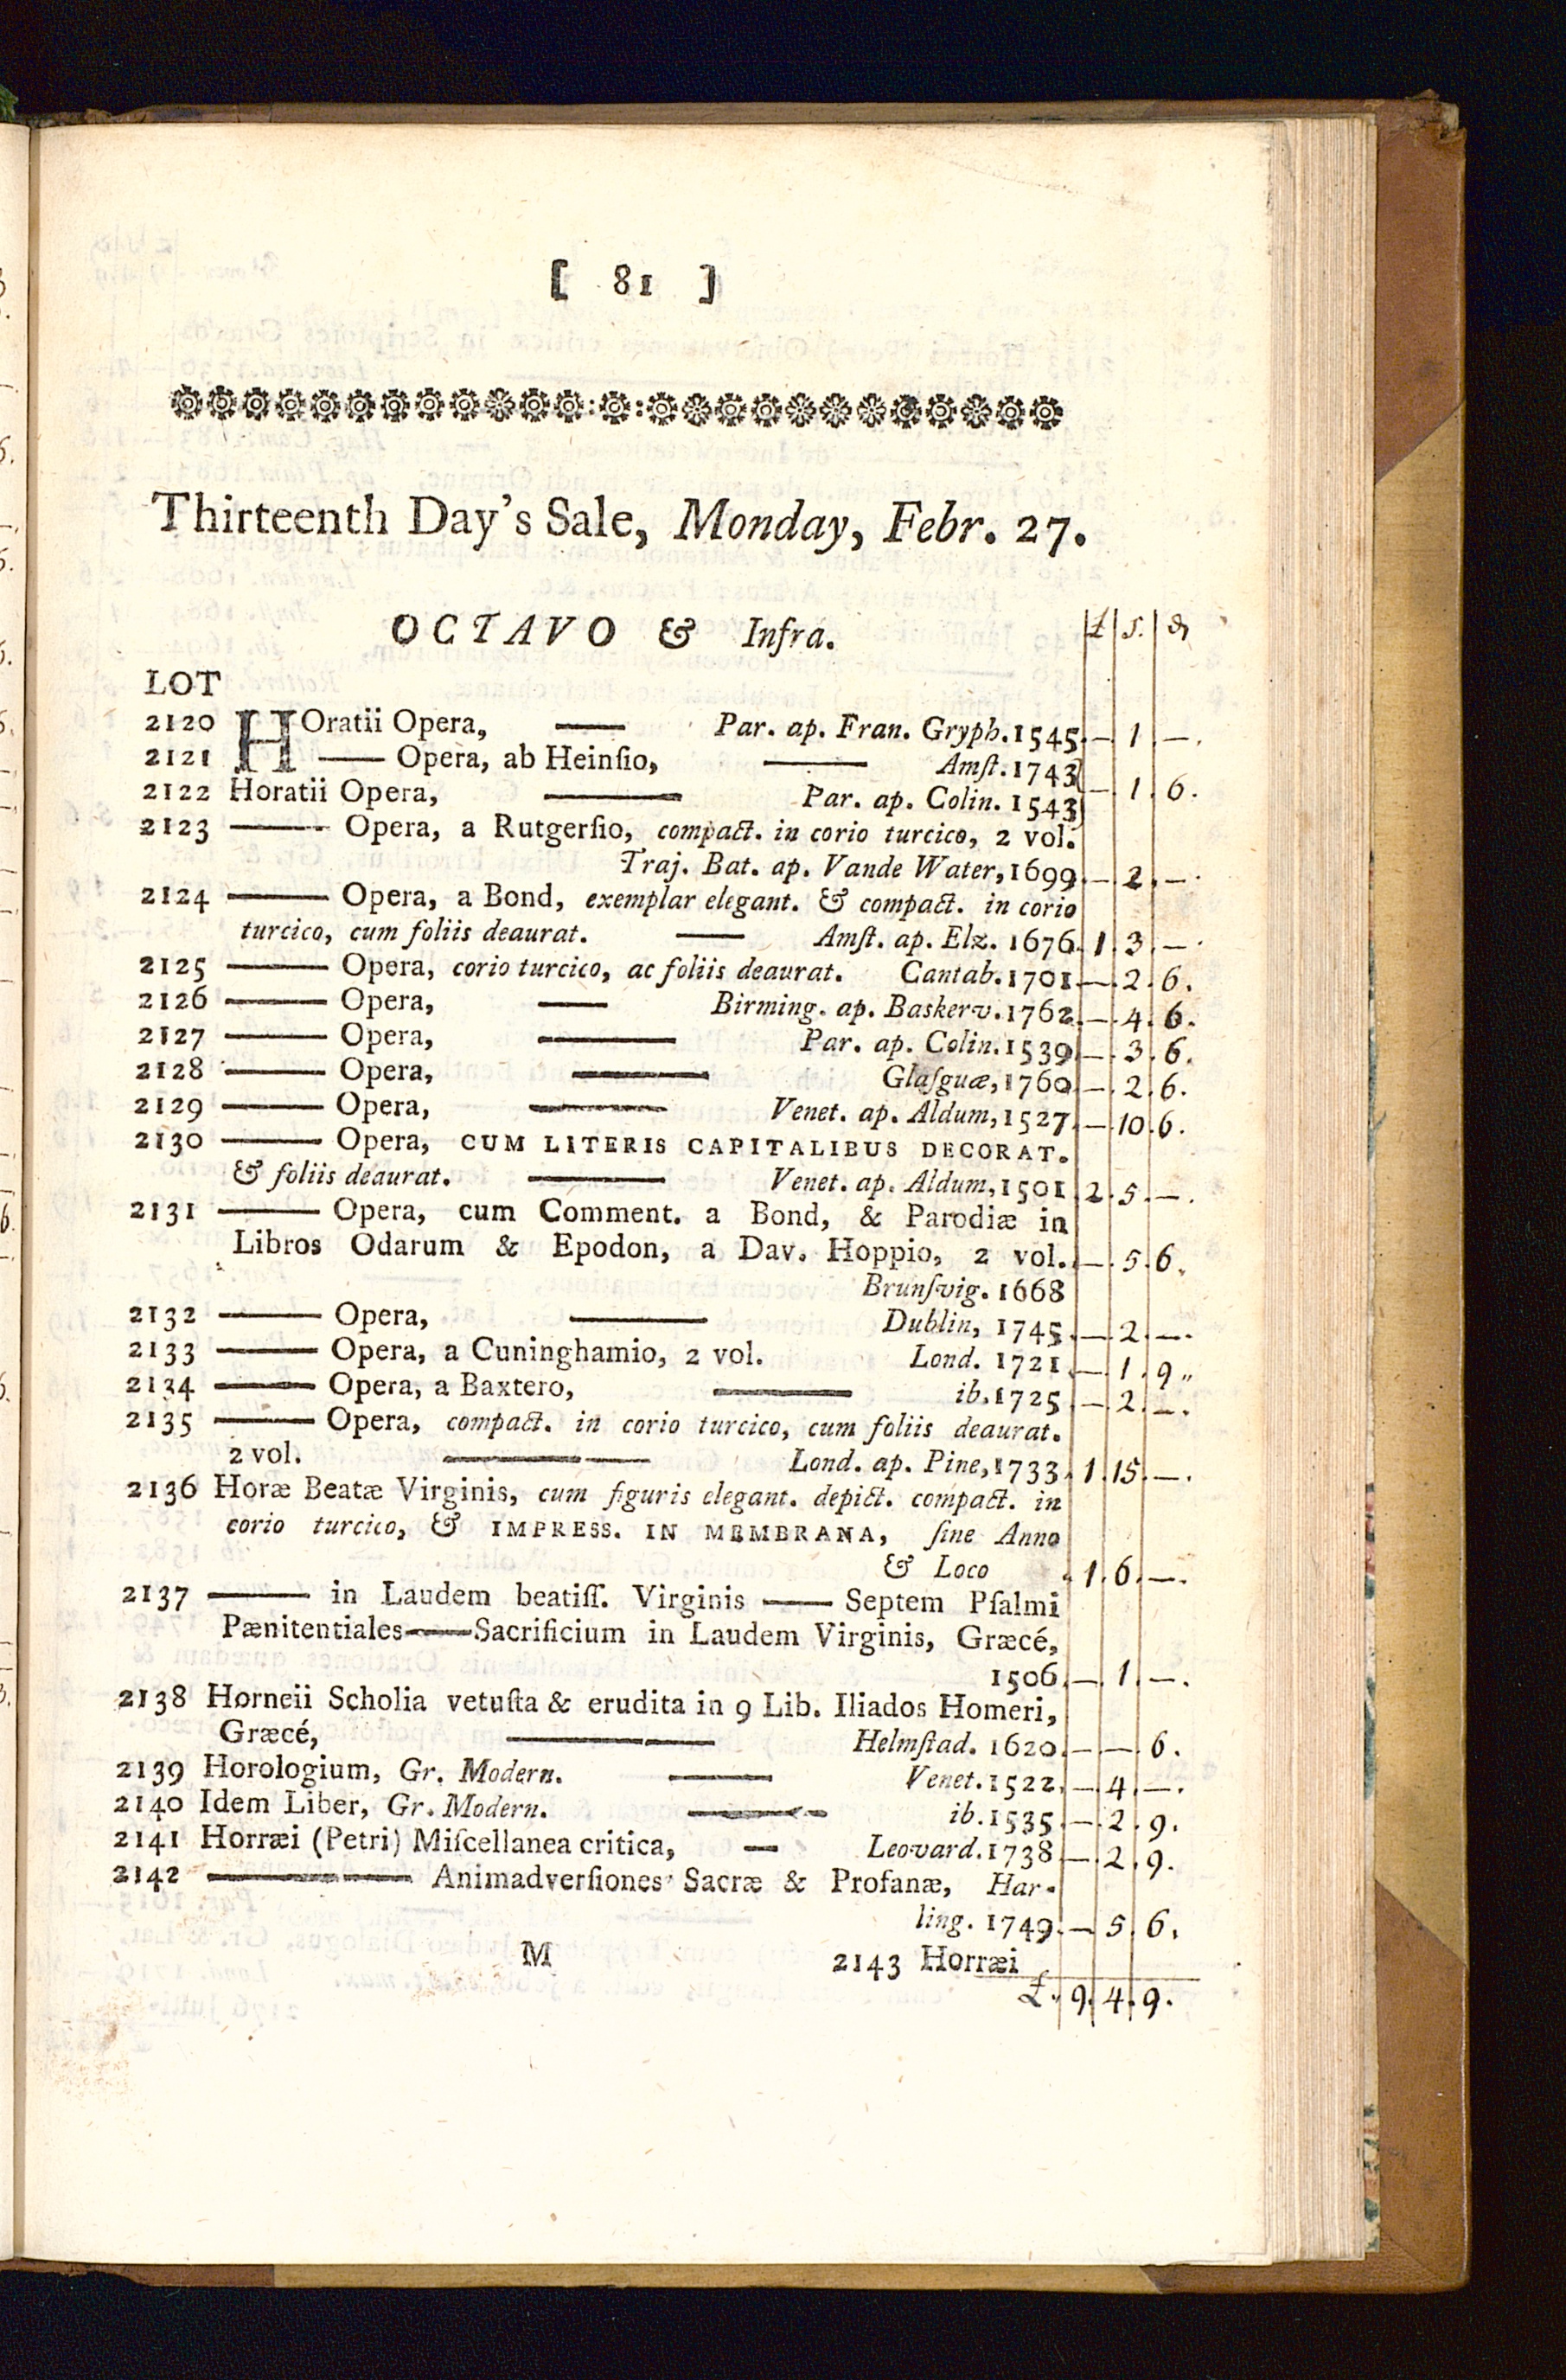 [ 81 ]
Thirteenth Day's Sale, Monday, Febr. 27.
OCTAVO & Infra. £ s. d
LOT
2120 HOratii Opera, —— Par. ap. Fran. Gryph. 1545. — 1 . — .
2121 —— Opera, ab Heinſio, —— Amſt. 1743
2122 Horatii Opera, —— Par. ap. Colin. 1543 } — . 1 . 6 .
2123 —— Opera, a Rutgerſio, compact. in corio turcico, 2 vol.
Traj. Bat. ap. Vande Water, 1699 . — . 2 . — .
2124 —— Opera, a Bond, exemplar elegant. & compact. in corio
turcico, cum foliis deaurat. —— Amſt. ap. Elz. 1676 . 1 . 3 . — .
2125 —— Opera, corio turcico, ac foliis deaurat. Cantab. 1701 — . 2 . 6 .
2126 —— Opera, —— Birming. ap. Baskerv. 1762 . — . 4 . 6 .
2127 —— Opera, —— Par. ap. Colin. 1539 . — . 3 . 6 .
2128 —— Opera, —— Glaſguæ, 1760 . — . 2 . 6 .
2129 —— Opera, —— Venet. ap. Aldum, 1527 . — . 10 . 6 .
2130 —— Opera, CUM LITERIS CAPITALIBUS DECORAT.
& foliis deaurat. —— Venet. ap. Aldum, 1501 . 2 . 5 . — .
2131 —— Opera, cum Comment. a Bond, & Parodiæ in
Libros Odarum & Epodon, a Dav. Hoppio, 2 vol. . — . 5 . 6 .
Brunſvig. 1668
2132 —— Opera, —— Dublin, 1745 . — . 2 . — .
2133 —— Opera, a Cuninghamio, 2 vol. Lond. 1721 . — . 1 . 9 "
2134 —— Opera, a Baxtero, —— ib. 1725 . — . 2 . — .
2135 —— Opera, compact. in corio turcico, cum foliis deaurat.
2 vol. —— Lond. ap. Pine, 1733 . 1 . 15 . — .
2136 Horæ Beatæ Virginis, cum figuris elegant. depict. compact. in
corio turcico, & IMPRESS. IN MEMBRANA, ſine Anno
& Loco . 1 . 6 . — .
2137 —— in Laudem beatiſſ. Virginis —— Septem Pſalmi
Pænitentiales——Sacrificium in Laudem Virginis, Græcé,
1506 . — . 1 . — .
2138 Horneii Scholia vetuſta & erudita in 9 Lib. Iliados Homeri,
Græcé, —— Helmſtad. 1620 . — . — . 6 .
2139 Horologium, Gr. Modern. —— Venet. 1522 . — . 4 . — .
2140 Idem Liber, Gr. Modern. —— ib. 1535 . — . 2 . 9 .
2141 Horræi (Petri) Miſcellanea critica, — Leovard. 1738 . — . 2 . 9 .
2142 —— Animadverſiones Sacræ & Profanæ, Har-
ling. 1749 . — . 5 . 6 .
M 2143 Horræi
£ . 9 . 4 . 9 .